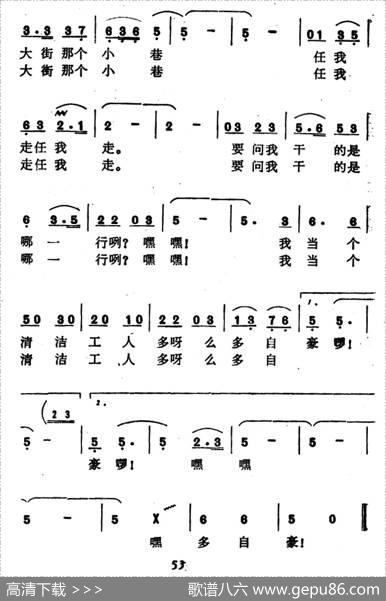 3·3 37 | 6 36 5 | 5 - | 5 - | 01 35 |
大街那个小巷 任我
大街那个小巷 任我
63 2·1 | 2 - | 2 - | 03 23 | 5·6 53 |
走任我走。 要问我干的是
走任我走。 要问我干的是
6 3·5 | 22 03 | 5 - | 5· 3 | 3· 6 |
哪一行咧?嘿嘿! 我当个
哪一行咧?嘿嘿! 我当个
1.
50 30 | 20 10 | 22 03 | 13 76 | 5 5· |
清洁工人多呀么多自豪啰!
清洁工人多呀么多自
(23 2.
5 - | 5 5· | 5 2·3 | 5 - | 5 - |
豪啰! 嘿嘿
5 - | 5 X | 6 6 | 5 0 ‖
嘿多自豪!
53
高清下载 >>> 歌谱八六 www.gepu86.com